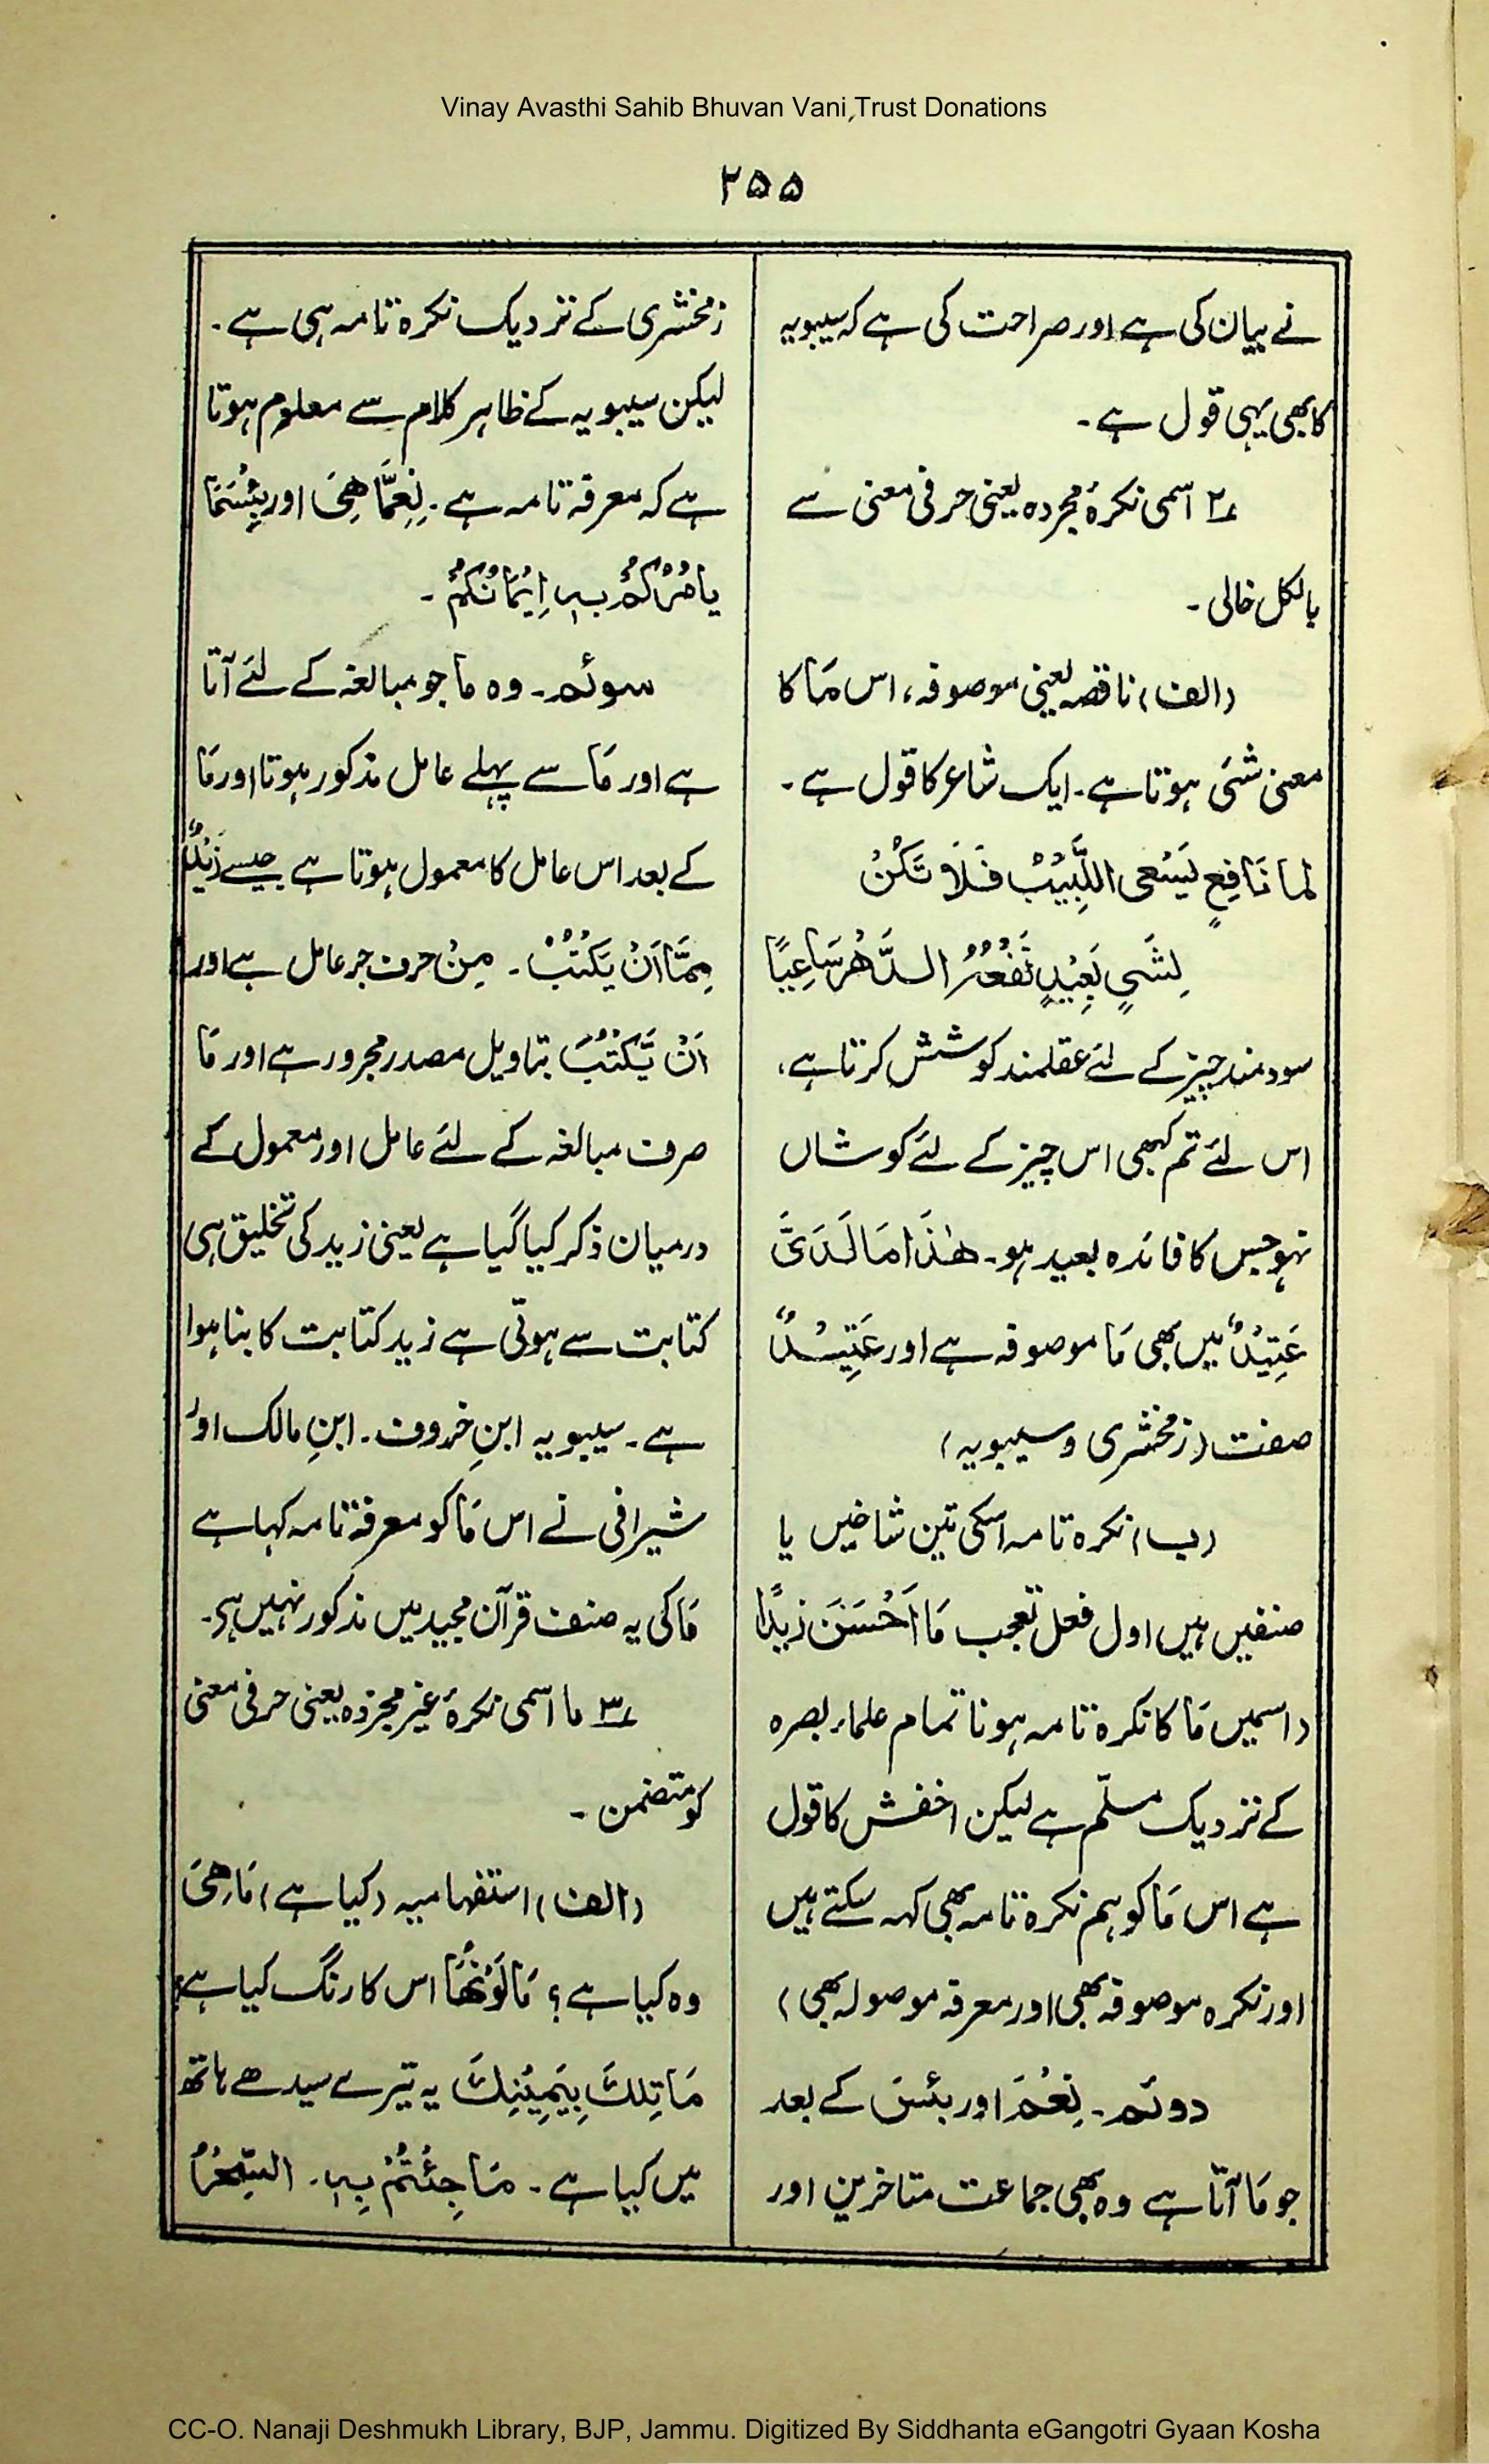 Vinay Avasthi Sahib Bhuvan Vani Trust Donations
۲۵۵
نے بیان کی ہے اور صراحت کی ہے کہ سیبویہ
کا بھی یہی قول ہے۔
۲؎ اسمی نکرۂ مجردہ یعنی حرفی معنی سے
بالکل خالی۔
(الف) ناقصہ یعنی موصوفہ، اس مَا کا
معنی شئی ہوتا ہے۔ ایک شاعر کا قول ہے۔
لما نَافِعٍ یَسْعی اللَّبِیْبُ فَلَا تَکُنْ
لِشَیٍ بَعِیْدٍ نَفْعُہُ الدَّھْرَ سَاعِیًا
سودمند چیز کے لئے عقلمند کوشش کرتا ہے،
اس لئے تم کبھی اس چیز کے لئے کوشاں
نہو جس کا فائدہ بعید ہو۔ ھٰذَا مَا لَدَیَّ
عَتِیْدٌ میں بھی مَا موصوفہ ہے اور عَتِیْدٌ
صفت (زمخشری و سیبویہ)
(ب) نکرہ تامہ اسکی تین شاخیں یا
صنفیں ہیں اول فعل تعجب مَا اَحْسَنَ زیدًا
(اسمیں مَا کا نکرہ تامہ ہونا تمام علماء بصرہ
کے نزدیک مسلّم ہے لیکن اخفش کا قول
ہے اس مَا کو ہم نکرہ تامہ بھی کہہ سکتے ہیں
اور نکرہ موصوفہ بھی اور معرفہ موصولہ بھی)
دوئم۔ نِعْمَ اور بئسَ کے بعد
جو مَا آتا ہے وہ بھی جماعت متاخرین اور
زمخشری کے نزدیک نکرہ تامہ ہی ہے۔
لیکن سیبویہ کے ظاہر کلام سے معلوم ہوتا
ہے کہ معرفہ تامہ ہے۔ نِعِمَّا ھِیَ اور بِئْسَمَا
یامُرُکُمْ بِہٖ اِیْمَانُکُمْ۔
سوئم۔ وہ ما جو مبالغہ کے لئے آتا
ہے اور مَا سے پہلے عامل مذکور ہوتا اور مَا
کے بعد اس عامل کا معمول ہوتا ہے جیسے زَیْدٌ
مِمَّا اَنْ یَکْتُبْ۔ مِنْ حرف جر عامل ہے اور
اَنْ یَّکْتُبَ بتاویل مصدر مجرور ہے اور مَا
صرف مبالغہ کے لئے عامل اور معمول کے
درمیان ذکر کیا گیا ہے یعنی زید کی تخلیق ہی
کتابت سے ہوئی ہے زید کتابت کا بنا ہوا
ہے۔ سیبویہ ابنِ خروف۔ ابنِ مالک اور
شیرافی نے اس مَا کو معرفہ تامہ کہا ہے
مَا کی یہ صنف قرآن مجید میں مذکور نہیں ہے۔
۳؎ ما اسمی نکرۂ غیر مجردہ یعنی حرفی معنی
کو متضمن۔
(الف) استفہامیہ (کیا ہے) مَا ھِیَ
وہ کیا ہے؟ مَا لَوْنُھَا اس کا رنگ کیا ہے؟
مَا تِلْکَ بِیَمِیْنِکَ یہ تیرے سیدھے ہاتھ
میں کیا ہے۔ مَا جِئْتُمْ بِہٖ۔ السِّحْرُ
CC-O. Nanaji Deshmukh Library, BJP, Jammu. Digitized By Siddhanta eGangotri Gyaan Kosha